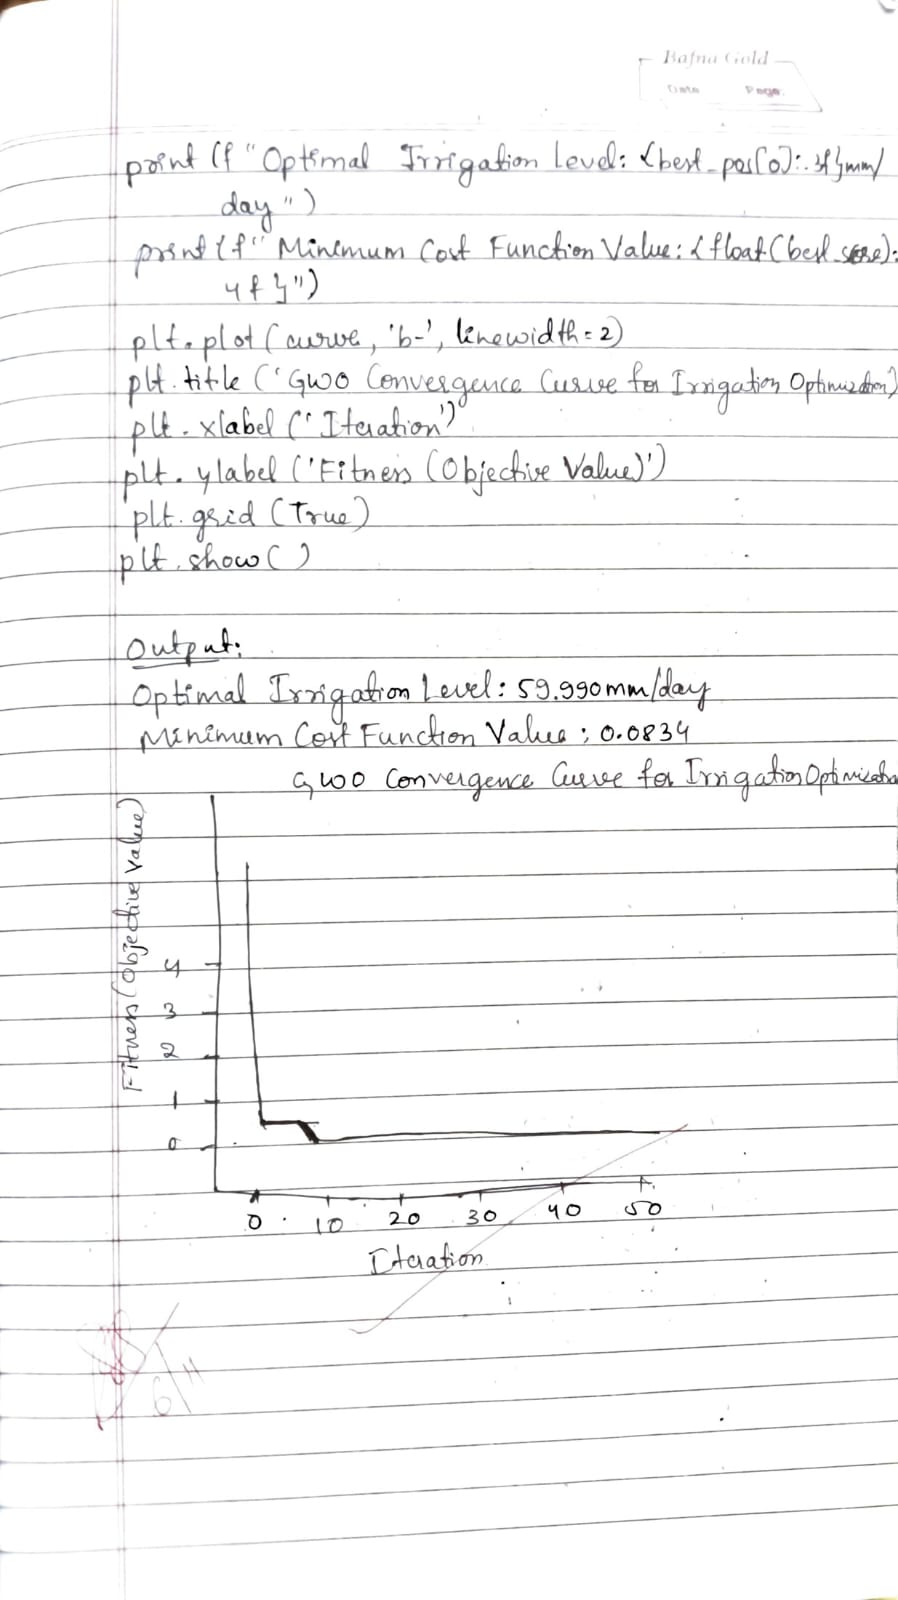 Bafna Gold
Date Page:
print (f "Optimal Irrigation Level: {best_pos[0]:.3f}mm/
day")
print (f" Minimum Cost Function Value: {float(best_score):
4f}")
plt.plot (curve, 'b-', linewidth = 2)
plt.title ('GWO Convergence Curve for Irrigation Optimization')
plt.xlabel ('Iteration')
plt.ylabel ('Fitness (Objective Value)')
plt.grid (True)
plt.show ( )
Output:
Optimal Irrigation Level: 59.990mm/day
Minimum Cost Function Value : 0.0834
GWO Convergence Curve for Irrigation Optimization
Fitness (Objective Value)
4
3
2
1
0
0 10 20 30 40 50
Iteration
6/11